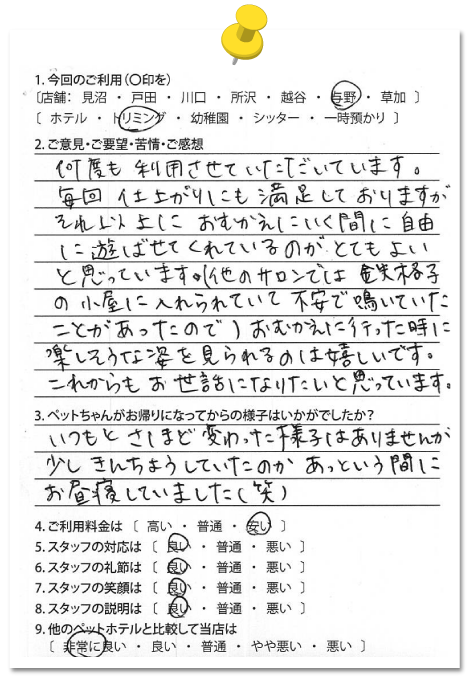 1. 今回のご利用(〇印を)
〔店舗： 見沼 ・ 戸田 ・ 川口 ・ 所沢 ・ 越谷 ・ 与野 ・ 草加 〕
〔 ホテル ・ トリミング ・ 幼稚園 ・ シッター ・ 一時預かり 〕
2. ご意見・ご要望・苦情・ご感想
何度も利用させていただいています。
毎回 仕上がりにも満足しておりますが
それ以上に おむかえにいく間に自由
に遊ばせてくれているのが とてもよい
と思っています。(他のサロンでは 鉄格子
の小屋に入れられていて 不安で鳴いていた
ことがあったので) おむかえに行った時に
楽しそうな姿を見られるのは嬉しいです。
これからもお世話になりたいと思っています。
3. ペットちゃんがお帰りになってからの様子はいかがでしたか？
いつもと さしほど 変わった様子はありませんが
少し きんちょうしていたのか あっという間に
お昼寝していました(笑)
4. ご利用料金は 〔 高い ・ 普通 ・ 安い 〕
5. スタッフの対応は 〔 良い ・ 普通 ・ 悪い 〕
6. スタッフの礼節は 〔 良い ・ 普通 ・ 悪い 〕
7. スタッフの笑顔は 〔 良い ・ 普通 ・ 悪い 〕
8. スタッフの説明は 〔 良い ・ 普通 ・ 悪い 〕
9. 他のペットホテルと比較して当店は
〔 非常に良い ・ 良い ・ 普通 ・ やや悪い ・ 悪い 〕